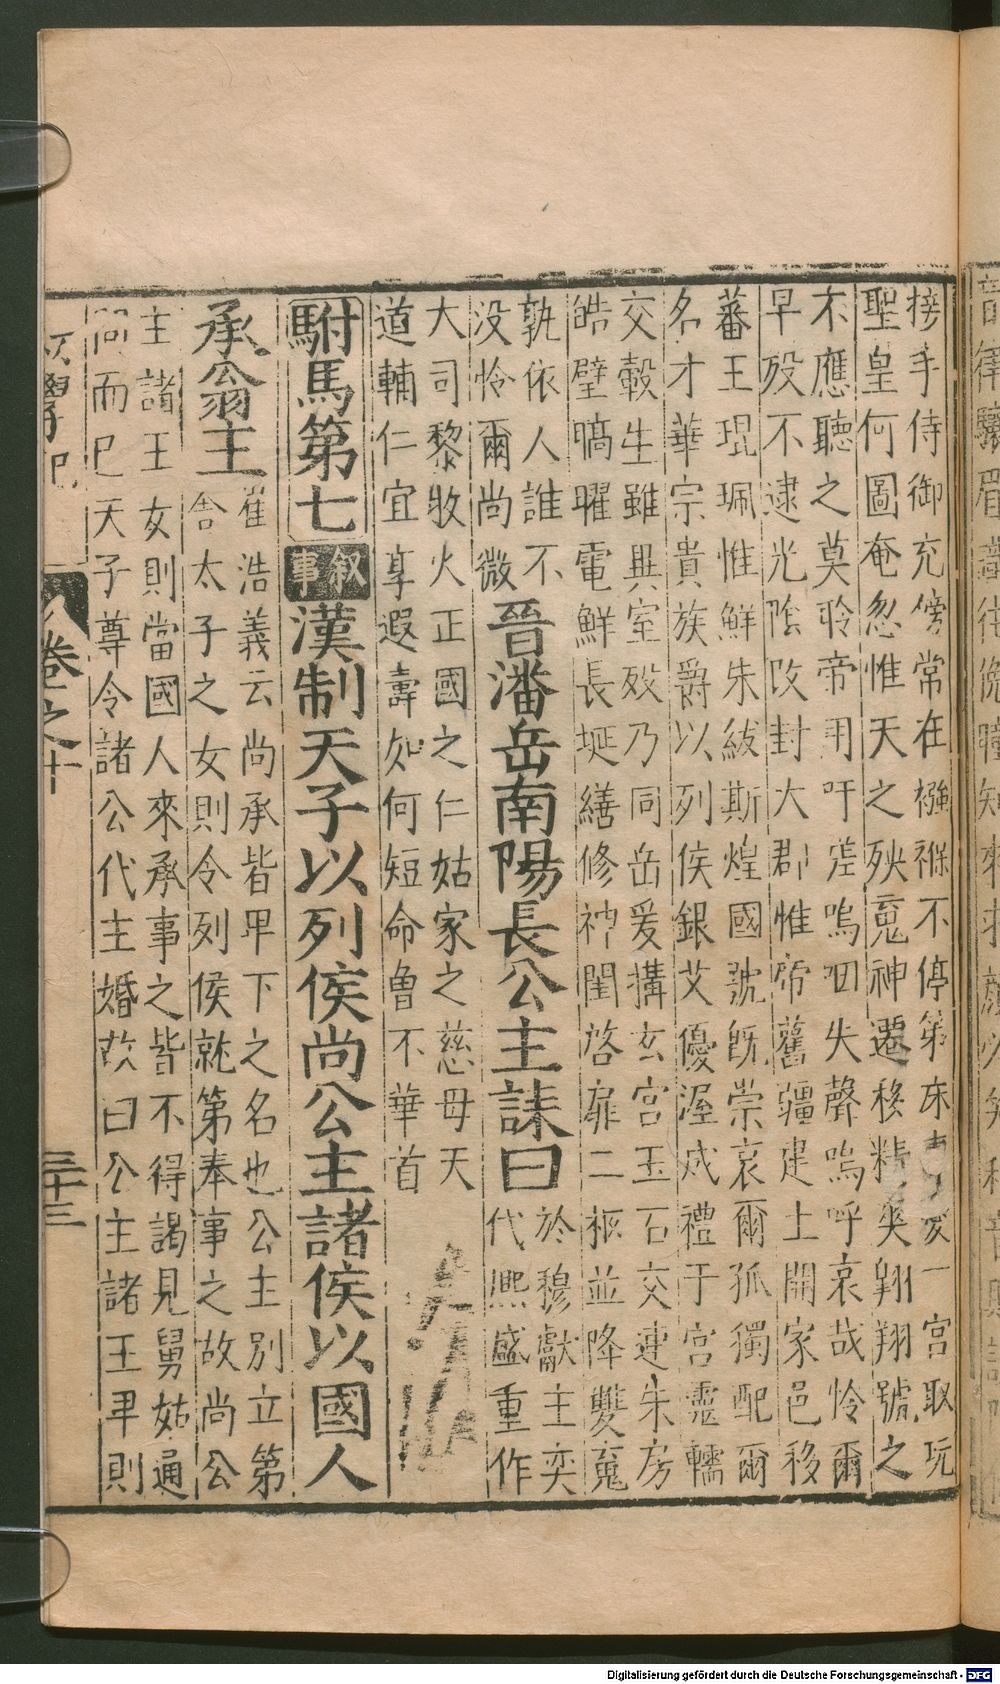 接手侍御充傍常在襁褓不停第床愛一宮取玩
聖皇何圖奄忽惟天之殃䰟神遷移精爽翔翔號之
不應聽之莫聆帝用吁嗟嗚呃失聲嗚呼哀哉怜爾
早歿不逮光陰改封大郡惟帝舊疆建土開家邑移
蕃王琨珮惟鮮朱紱斯煌國號既崇哀爾孤獨配爾
名才華宗貴族爵以列侯銀艾優渥成禮于宮靈轜
交轂生雖異室歿乃同岳爰搆玄宮玉石交連朱房
皓壁暠曜電鮮長埏繕修神閨啓扉二柩並降雙䰟
孰依人誰不
没怜爾尚微
晉潘岳南陽長公主誄曰
於穆獻主奕
代熙盛重作
大司黎牧火正國之仁姑家之慈母天
道輔仁宜享遐壽如何短命魯不華首
駙馬第七 叙事 漢制天子以列侯尚公主諸侯以國人
承翁主
崔浩義云尚承皆卑下之名也公主别立第
舍太子之女則令列侯就第奉事之故尚公
主諸王女則當國人來承事之皆不得謁見舅姑通
問而已天子尊令諸公代主婚故曰公主諸王卑則
初學記 卷之十 三十三
Digitalisierung gefördert durch die Deutsche Forschungsgemeinschaft - DFG